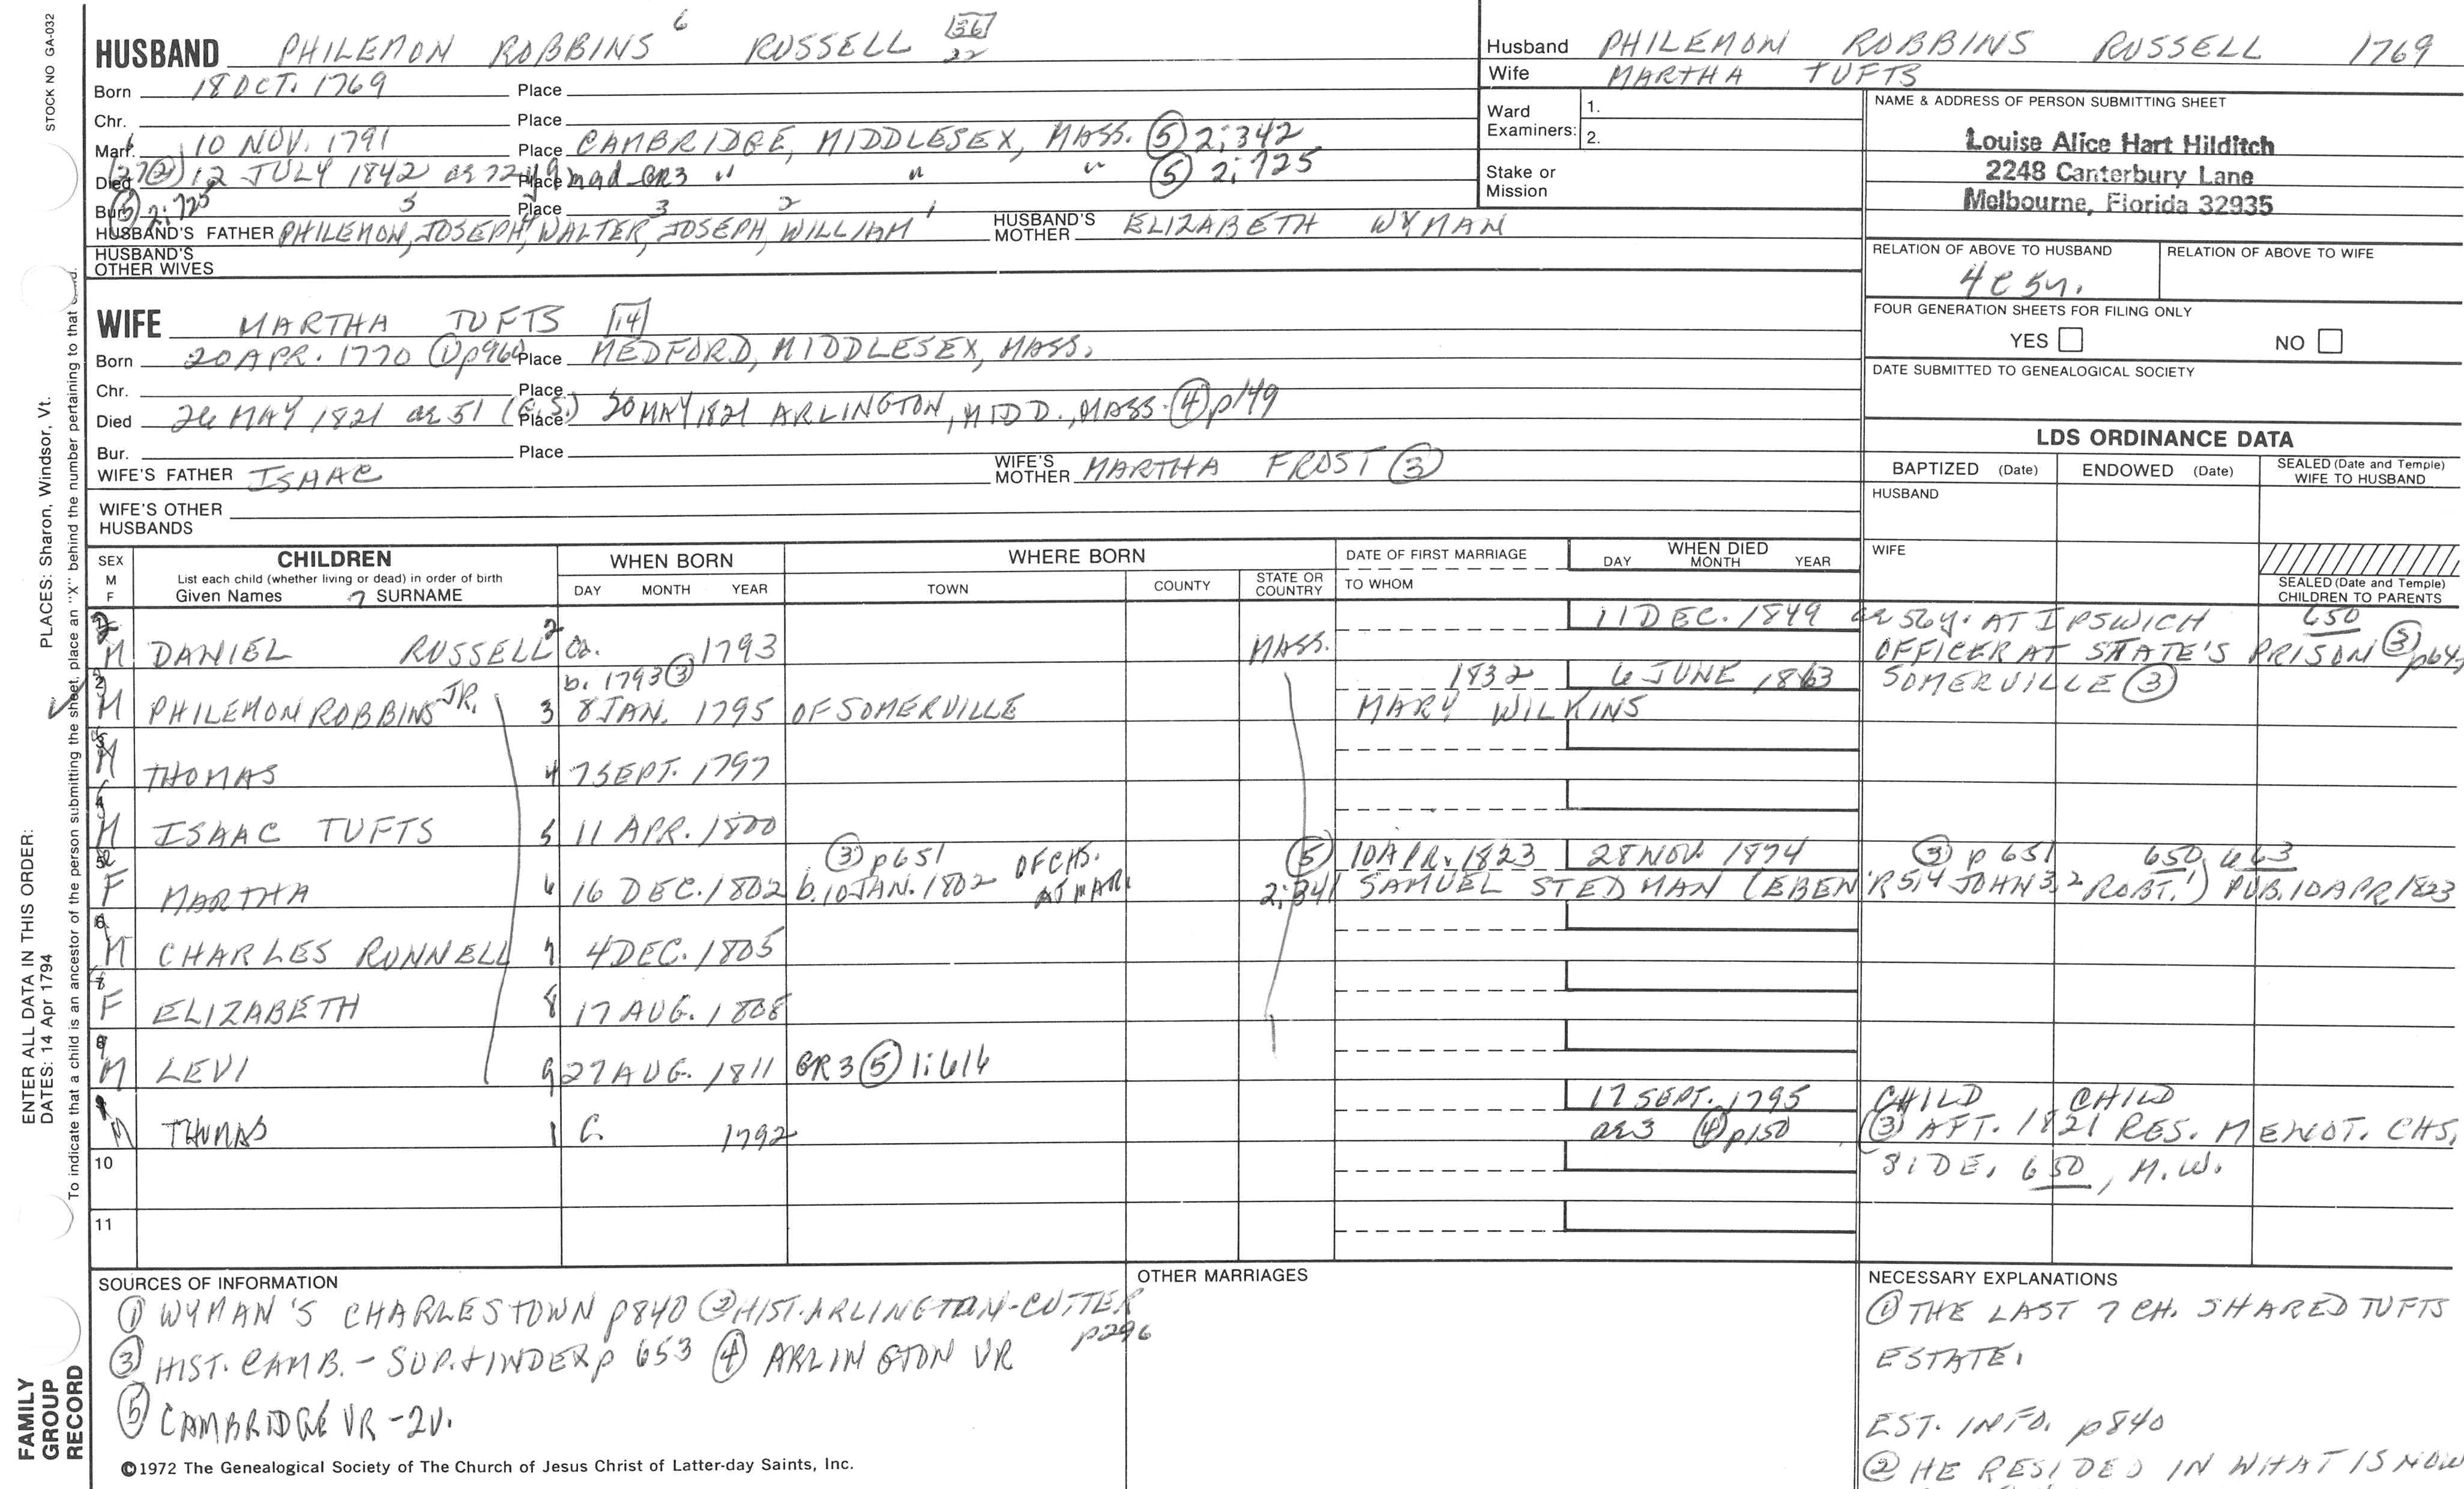 STOCK NO GA-032
HUSBAND PHILEMON ROBBINS 6 RUSSELL 36 22
Born 18 OCT. 1769 Place
Chr. Place
Marr. 10 NOV. 1791 Place CAMBRIDGE, MIDDLESEX, MASS. (5) 2;342
Died 12 JULY 1842 ae 72y 9m Place GR3 " " " (5) 2;725
Bur. (5) 2;725 Place
5 4 3 2 1
HUSBAND'S FATHER PHILEMON, JOSEPH, WALTER, JOSEPH, WILLIAM HUSBAND'S MOTHER ELIZABETH WYMAN
HUSBAND'S OTHER WIVES
WIFE MARTHA TUFTS 14
Born 20 APR. 1770 (1) p960 Place MEDFORD, MIDDLESEX, MASS.
Chr. Place
Died 26 MAY 1821 ae 51 (G.S.) Place 20 MAY 1821 ARLINGTON, MIDD., MASS. (4) p149
Bur. Place
WIFE'S FATHER ISAAC WIFE'S MOTHER MARTHA FROST (3)
WIFE'S OTHER HUSBANDS
Husband PHILEMON ROBBINS RUSSELL 1769
Wife MARTHA TUFTS
Ward Examiners: 1.
2.
Stake or Mission
NAME & ADDRESS OF PERSON SUBMITTING SHEET
Louise Alice Hart Hilditch
2248 Canterbury Lane
Melbourne, Florida 32935
RELATION OF ABOVE TO HUSBAND RELATION OF ABOVE TO WIFE
4c 5r.
FOUR GENERATION SHEETS FOR FILING ONLY
YES NO
DATE SUBMITTED TO GENEALOGICAL SOCIETY
LDS ORDINANCE DATA
BAPTIZED (Date) ENDOWED (Date) SEALED (Date and Temple) WIFE TO HUSBAND
HUSBAND
WIFE
SEALED (Date and Temple) CHILDREN TO PARENTS
SEX M F CHILDREN WHEN BORN WHERE BORN DATE OF FIRST MARRIAGE WHEN DIED
List each child (whether living or dead) in order of birth DAY MONTH YEAR
Given Names 7 SURNAME DAY MONTH YEAR TOWN COUNTY STATE OR COUNTRY TO WHOM
11 DEC. 1849 ae 56y. AT IPSWICH 650
M DANIEL RUSSELL 2 Ca. 1793 MASS. OFFICER AT STATE'S PRISON (3)
b. 1793 (3) 1832 6 JUNE 1863 SOMERVILLE (3)
M PHILEMON ROBBINS JR. 3 8 JAN. 1795 OF SOMERVILLE MARY WILKINS
M THOMAS 4 7 SEPT. 1797
M ISAAC TUFTS 5 11 APR. 1800
(3) p651 OF CHS. (5) 10 APR. 1823 28 NOV. 1874 (3) p 651 650, 663
F MARTHA 6 16 DEC. 1802 b. 10 JAN. 1802 AT MAR. 2;341 SAMUEL STEDMAN (EBEN'R 5,4 JOHN 3,2 ROBT.1) PUB. 10 APR 1823
M CHARLES RUNNELL 7 4 DEC. 1805
F ELIZABETH 8 17 AUG. 1808
M LEVI 9 27 AUG. 1811 GR3 (5) 1;616
17 SEPT. 1795 CHILD CHILD
M THOMAS 1 C. 1792 ae 3 (4) p150 (3) AFT. 1821 RES. MENOT. CHS.
10 SIDE. 650, M.W.
11
SOURCES OF INFORMATION
(1) WYMAN'S CHARLESTOWN p840 (2) HIST. ARLINGTON-CUTTER p296
(3) HIST. CAMB. - SUP. + INDEX p 653 (4) ARLINGTON VR
(5) CAMBRIDGE VR - 2V.
©1972 The Genealogical Society of The Church of Jesus Christ of Latter-day Saints, Inc.
OTHER MARRIAGES
NECESSARY EXPLANATIONS
(1) THE LAST 7 CH. SHARED TUFTS
ESTATE.
EST. INFO. p840
(2) HE RESIDED IN WHAT IS NOW
PLACES: Sharon, Windsor, Vt.
ENTER ALL DATA IN THIS ORDER:
DATES: 14 Apr 1794
To indicate that a child is an ancestor of the person submitting the sheet, place an "X" behind the number pertaining to that
FAMILY
GROUP
RECORD